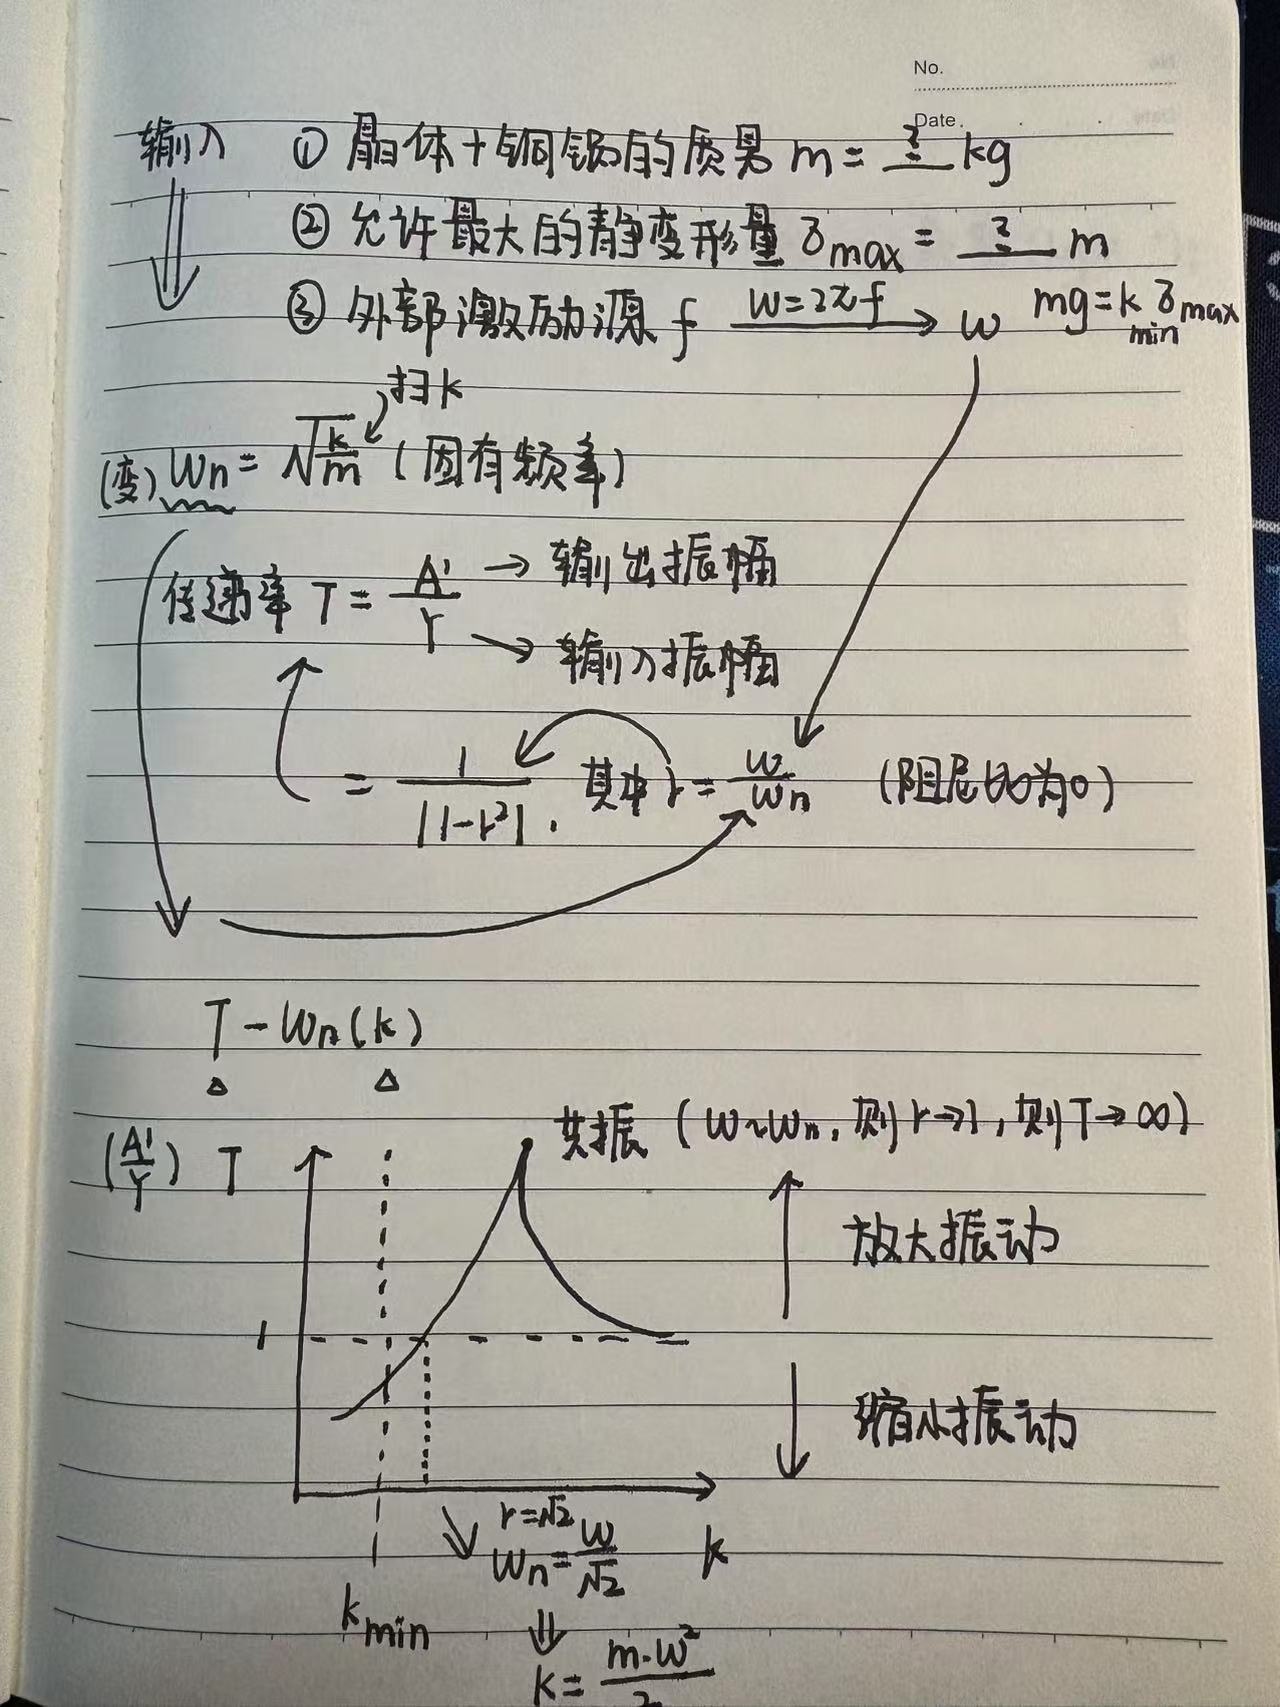 No.
Date.
输入 ① 晶体+铜锅的质量 m = ? kg
② 允许最大的静变形量 δmax = ? m
③ 外部激励源 f w=2πf → w mg=kmin δmax
扫k
(变) wn = √(k/m) (固有频率)
传递率 T = A'/Y → 输出振幅
→ 输入振幅
= 1/|1-r²|. 其中 r = w/wn (阻尼比为0)
T - wn(k)
共振 (w~wn, 则r→1, 则T→∞)
(A'/Y) T
放大振动
1
缩小振动
r=√2
wn=w/√2 k
kmin
k = m·w²/2